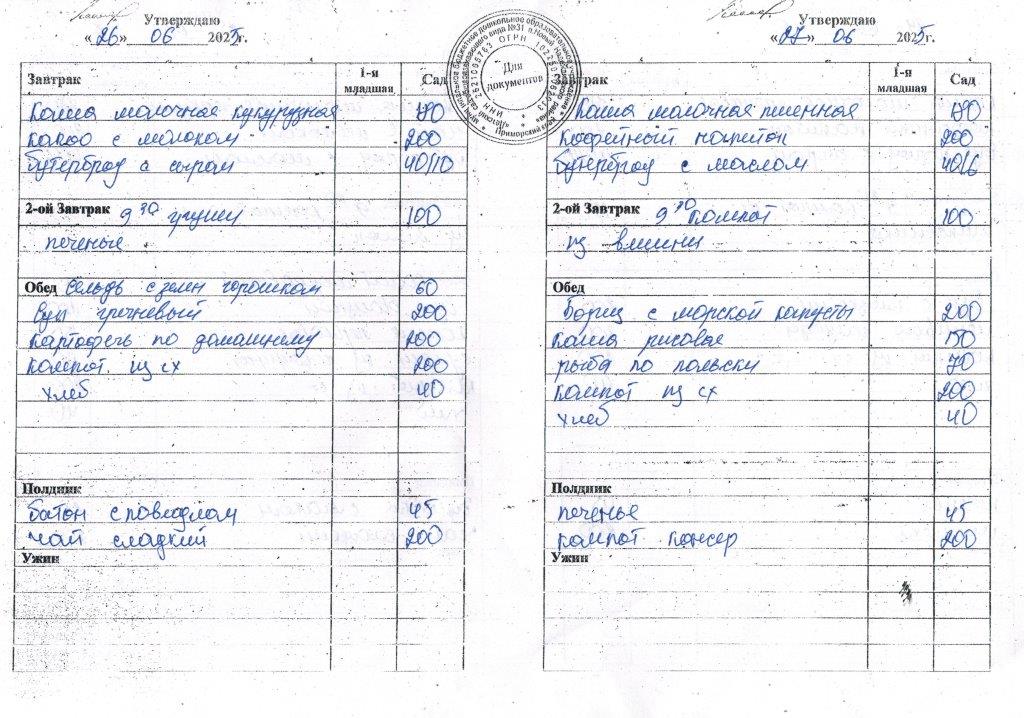 Утверждаю
«26» 06 2025г.
Завтрак 1-я младшая Сад
Каша молочная кукурузная 190
какао с молоком 200
бутерброд с сыром 40/10
2-ой Завтрак 9 30 100
печенье
Обед сельдь с зелен горошком 60
Суп гречневый 200
картофель по домашнему 200
компот из сх 200
хлеб 40
Полдник
батон с повидлом 45
чай сладкий 200
Ужин
Для документов
Утверждаю
«27» 06 2025г.
Завтрак 1-я младшая Сад
Каша молочная пшенная 190
Кофейный напиток 200
бутерброд с маслом 40/6
2-ой Завтрак 9 30 компот 100
из вишни
Обед
Борщ с морской капусты 200
Каша рисовая 150
рыба по польски 70
компот из сх 200
хлеб 40
Полдник
печенье 45
компот консер 200
Ужин